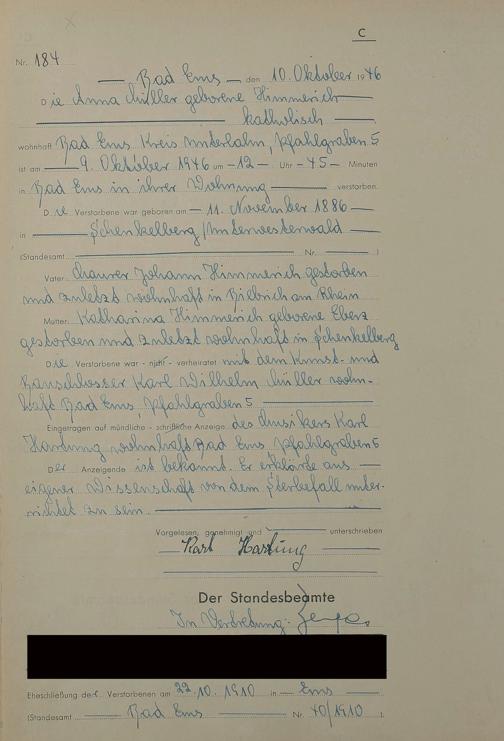 C
Nr. 184
Bad Ems den 10. Oktober 1946
Die Anna Müller geborene Himmerich
katholisch
wohnhaft Bad Ems Kreis Unterlahn, Pfahlgraben 5
ist am 9. Oktober 1946 um 12 Uhr 45 Minuten
in Bad Ems in ihrer Wohnung verstorben.
Die Verstorbene war geboren am 11. November 1886
in Schenkelberg/Unterwesterwald
(Standesamt Nr. )
Vater: Maurer Johann Himmerich gestorben
und zuletzt wohnhaft in Bilbrich am Rhein
Mutter: Katharina Himmerich geborene Eberz
gestorben und zuletzt wohnhaft in Schenkelberg
Die Verstorbene war - nicht - verheiratet mit dem Kunst- und
Bauschlosser Karl Wilhelm Müller wohn-
haft Bad Ems, Pfahlgraben 5
Eingetragen auf mündliche - schriftliche Anzeige des Musikers Karl
Hartung wohnhaft Bad Ems Pfahlgraben 5
Der Anzeigende ist bekannt. Er erklärte aus
eigener Wissenschaft von dem Sterbefall unter-
richtet zu sein.
Vorgelesen, genehmigt und unterschrieben
Karl Hartung
Der Standesbeamte
In Vertretung:
Eheschließung der Verstorbenen am 22.10.1910 in Ems
(Standesamt Bad Ems Nr. 40/1910 ).